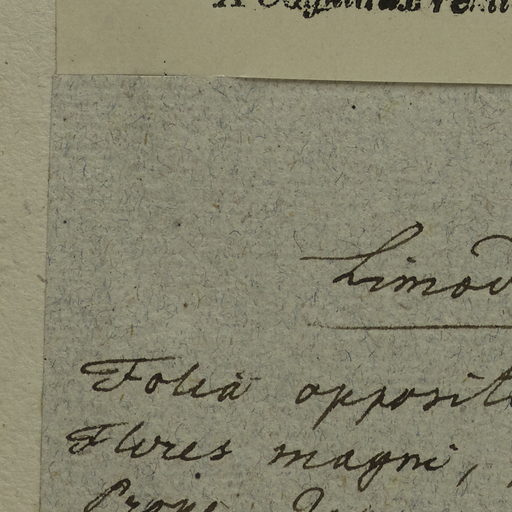 Limod
Folia opposit
Flores magni,
Prope